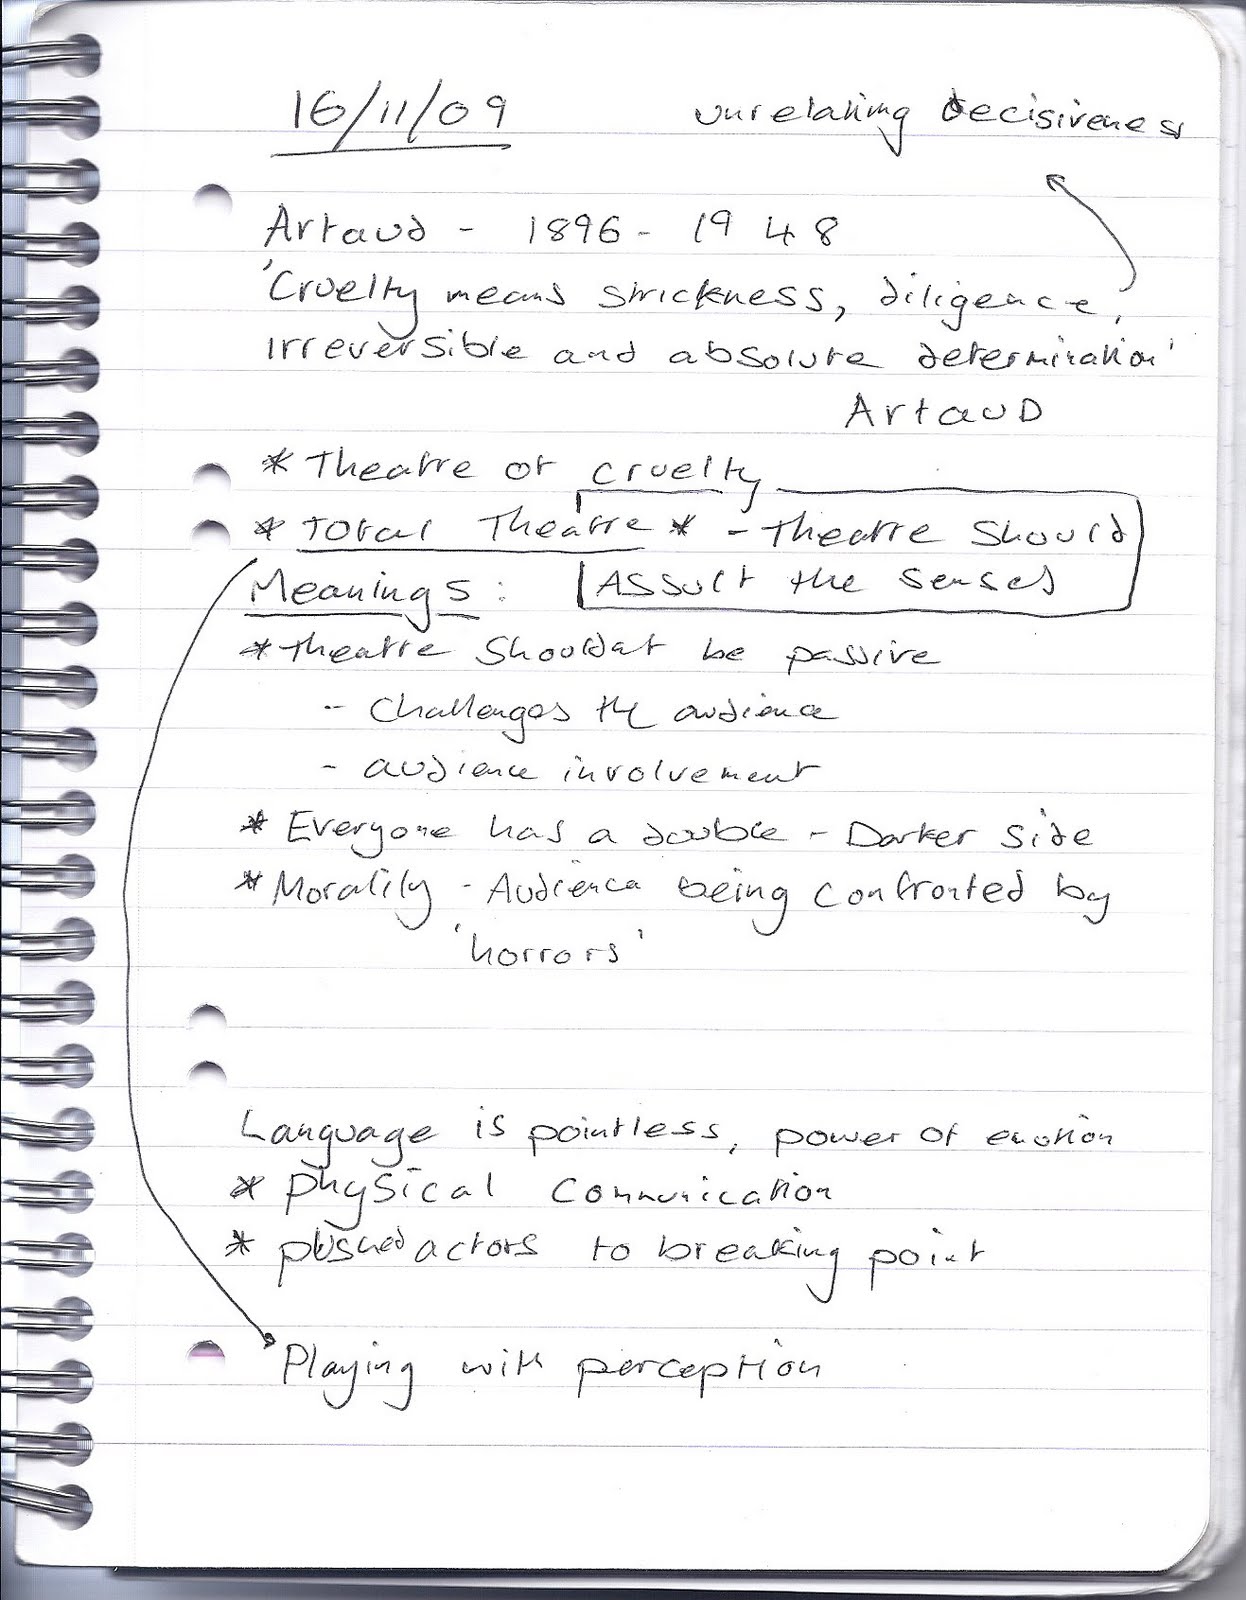 16/11/09 unrelating decisiveness
Artaud - 1896 - 1948
'Cruelty means strickness, diligence,
irreversible and absolute determination'
Artaud
* Theatre of cruelty
* Total Theatre * - Theatre should
Meanings: Assult the senses
* Theatre shouldnt be passive
- challenges the audience
- audience involvement
* Everyone has a double - Darker side
* Morality - Audience being confronted by
'horrors'
Language is pointless, power of emotion
* physical communication
* pushed actors to breaking point
Playing with perception